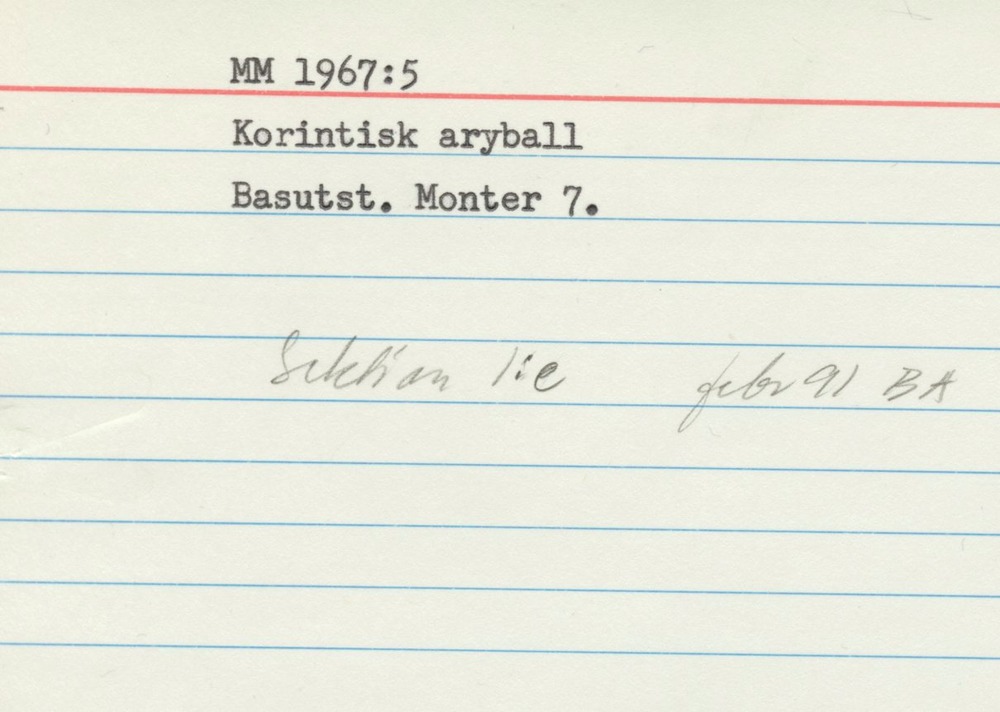 MM 1967:5
Korintisk aryball
Basutst. Monter 7.
Sektion 1:e febr 91 BA